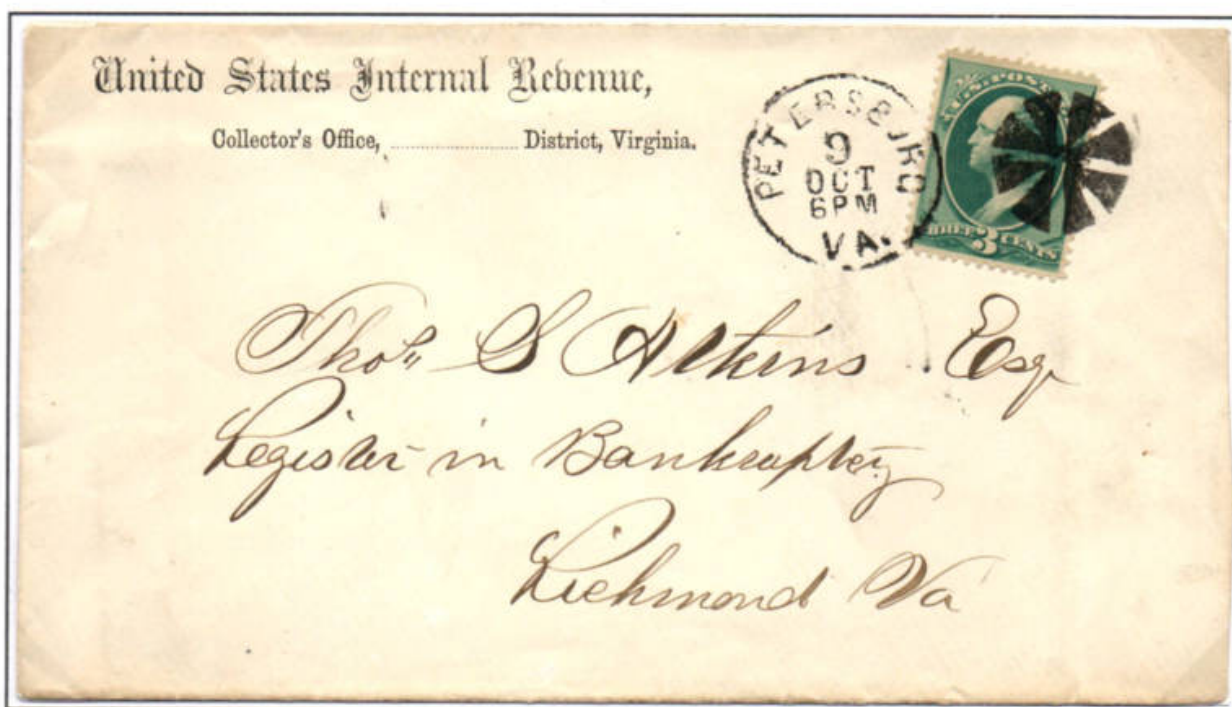 United States Internal Revenue,
Collector's Office, .................... District, Virginia.
PETERSBURG
9
OCT
6PM
VA.
U.S. POST
THREE 3 CENTS
Thos S Atkins Esq
Register in Bankruptcy
Richmond Va